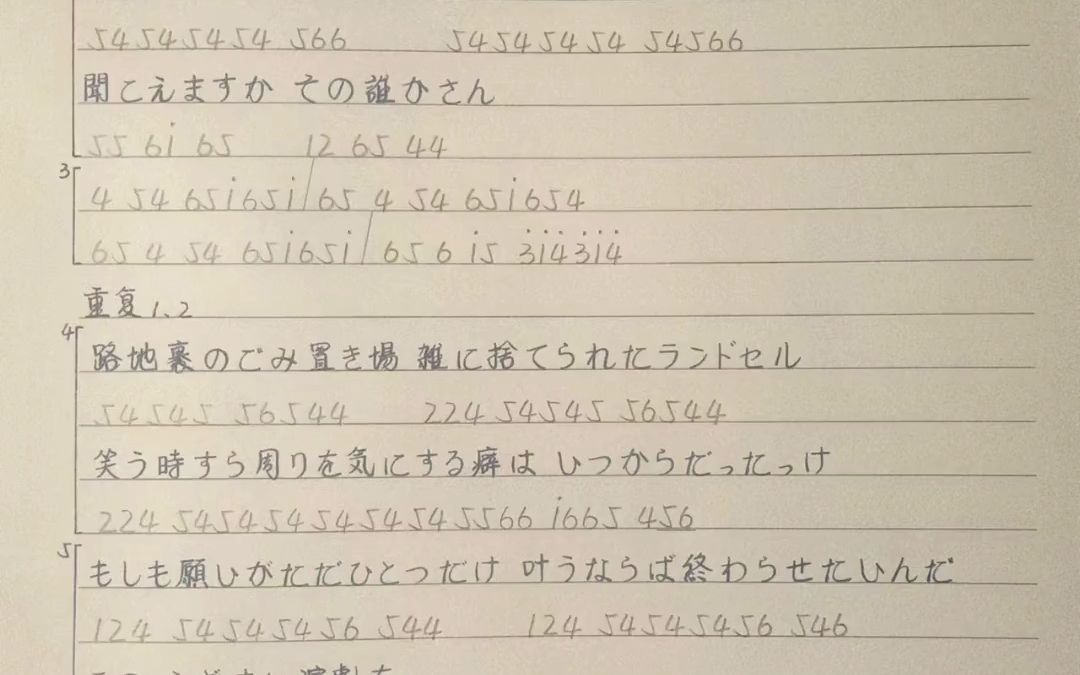 54545454 566 54545454 54566
聞こえますか その誰かさん
55 6i 65 12 65 44
3
4 54 65i65i/65 4 54 65i654
65 4 54 65i65i/ 65 6 i5 3̇1̇4̇3̇1̇4̇
重复1、2
4
路地裏のごみ置き場 雑に捨てられたランドセル
54545 56544 224 54545 56544
笑う時すら周りを気にする癖は いつからだったっけ
224 5454545454545566 i665 456
5
もしも願いがただひとつだけ 叶うならば終わらせたいんだ
124 54545456 544 124 54545456 546